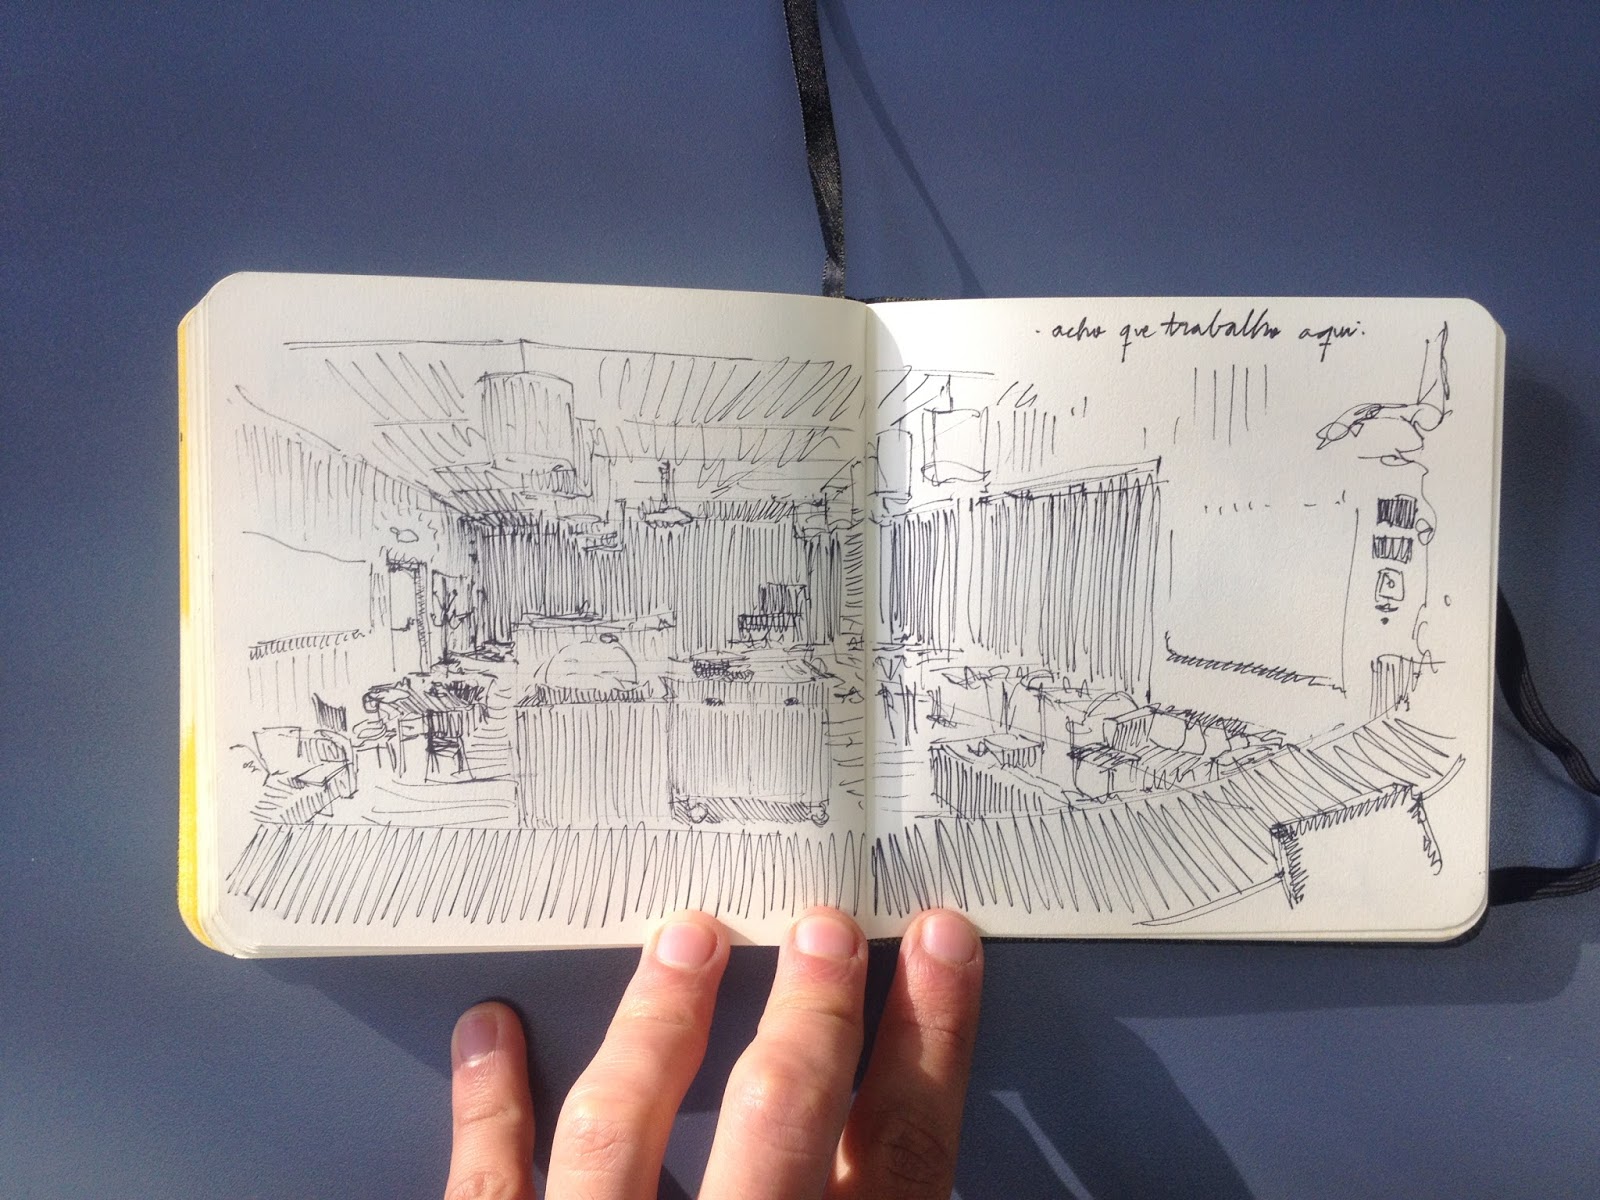 . acho que trabalho aqui.